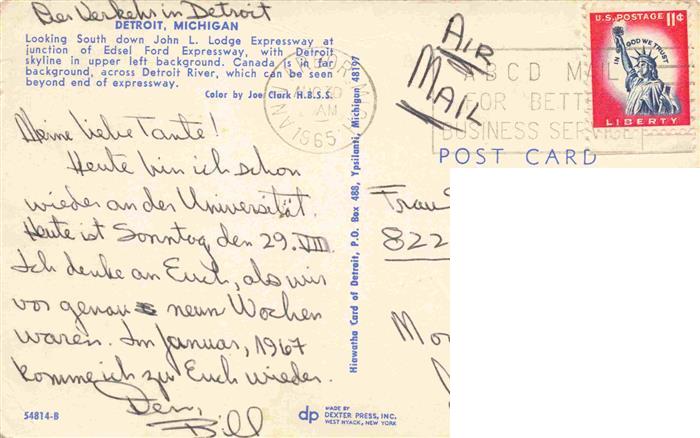 Der Verkehr in Detroit
DETROIT, MICHIGAN
Looking South down John L. Lodge Expressway at
junction of Edsel Ford Expressway, with Detroit
skyline in upper left background. Canada is in far
background, across Detroit River, which can be seen
beyond end of expressway.
Color by Joe Clark H.B.S.S.
Meine liebe Tante!
Heute bin ich schon
wieder an der Universität.
Heute ist Sonntag, den 29. VIII.
Ich denke an Euch, als wir
vor genau neun Wochen
waren. Im Januar, 1967
komme ich zu Euch wieder.
Dein,
Bill
54814-B
Hiawatha Card of Detroit, P.O. Box 488, Ypsilanti, Michigan 48197
dp MADE BY
DEXTER PRESS, INC.
WEST NYACK, NEW YORK
AIR
MAIL
AUG 30
AM
1965
ABCD MAIL
FOR BETTER
BUSINESS SERVICE
U.S. POSTAGE 11¢
IN GOD WE TRUST
LIBERTY
POST CARD
Frau
822
Mo